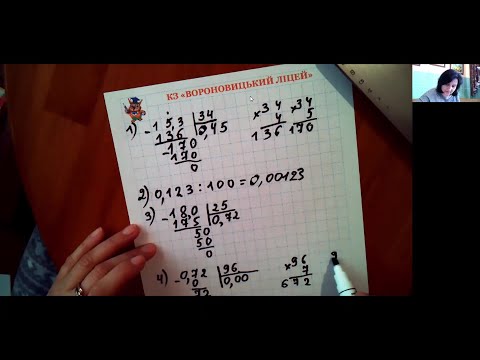 КЗ «ВОРОНОВИЦЬКИЙ ЛІЦЕЙ»
1) -15,3 | 34
136 | 0,45
-170
-170
0
×34
4
136
×34
5
170
2) 0,123 : 100 = 0,00123
3) -18,0 | 25
175 | 0,72
50
50
0
4) -0,72 | 96
0 | 0,00
72
×96
7
672
9